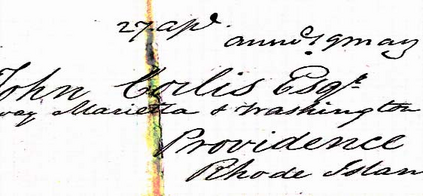 27 apl.
ansd 19 may
John Corlis Esqr
way Marietta & Washington
Providence
Rhode Islan